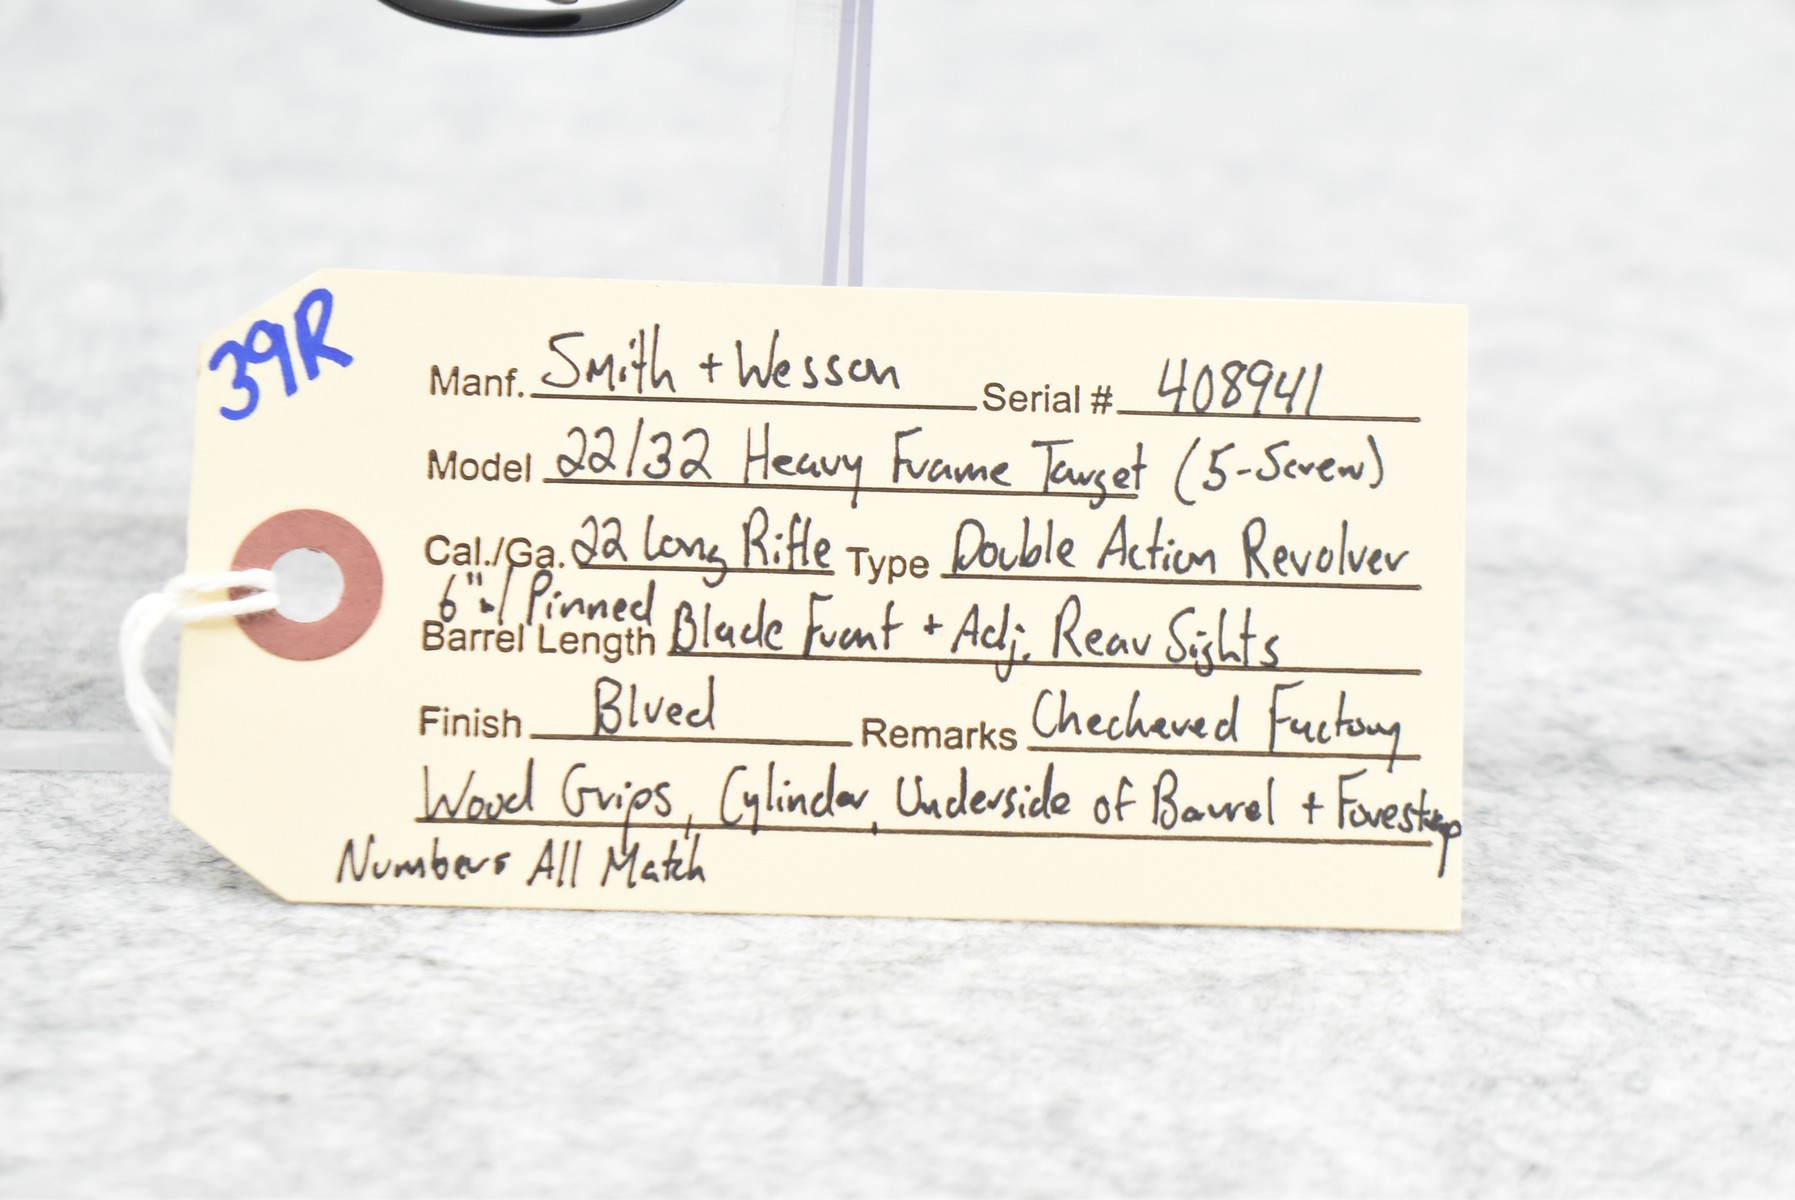 39R
Manf. Smith + Wesson Serial # 408941
Model 22/32 Heavy Frame Target (5-Screw)
Cal./Ga. 22 Long Rifle Type Double Action Revolver
6" w/ Pinned
Barrel Length Blade Front + Adj. Rear Sights
Finish Blued Remarks Checkered Factory
Wood Grips, Cylinder, Underside of Barrel + Forestrap
Numbers All Match